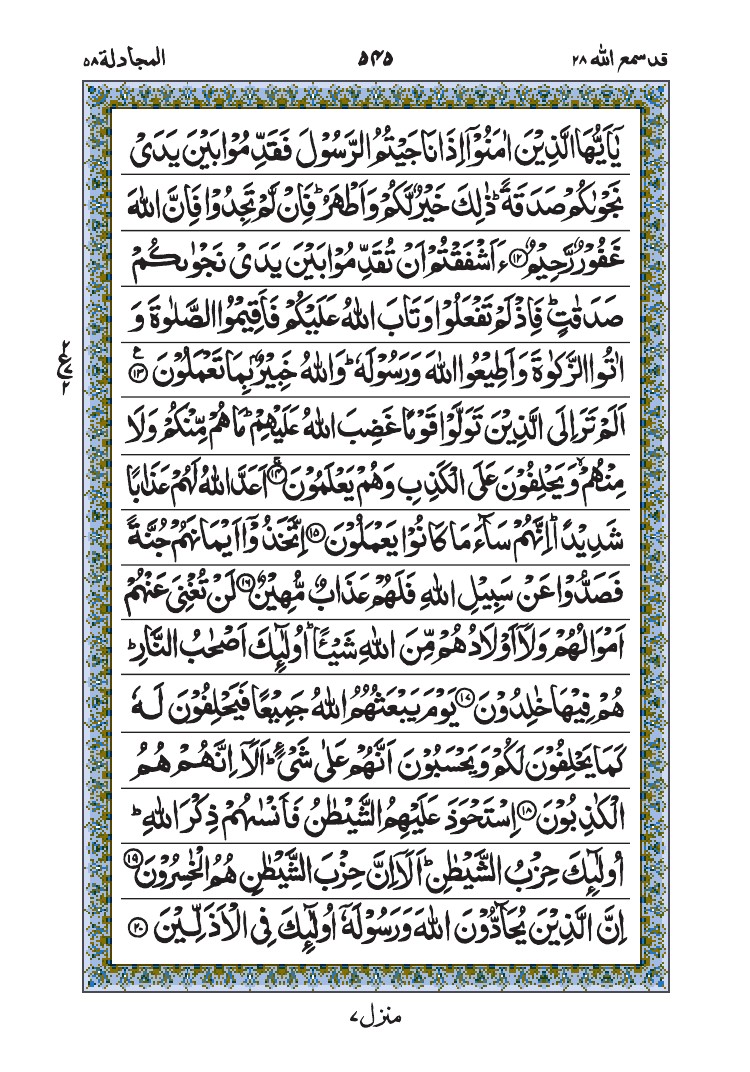 قد سمع الله ٢٨
٥٤٥
المجادلة ٥٨
يٰٓاَيُّهَا الَّذِيْنَ اٰمَنُوْٓا اِذَا نَاجَيْتُمُ الرَّسُوْلَ فَقَدِّمُوْا بَيْنَ يَدَىْ
نَجْوٰىكُمْ صَدَقَةً ؕ ذٰلِكَ خَيْرٌ لَّكُمْ وَاَطْهَرُ ؕ فَاِنْ لَّمْ تَجِدُوْا فَاِنَّ اللّٰهَ
غَفُوْرٌ رَّحِيْمٌ ⑫ ءَاَشْفَقْتُمْ اَنْ تُقَدِّمُوْا بَيْنَ يَدَىْ نَجْوٰىكُمْ
صَدَقٰتٍ ؕ فَاِذْ لَمْ تَفْعَلُوْا وَتَابَ اللّٰهُ عَلَيْكُمْ فَاَقِيْمُوا الصَّلٰوةَ وَ
اٰتُوا الزَّكٰوةَ وَاَطِيْعُوا اللّٰهَ وَرَسُوْلَهٗ ؕ وَاللّٰهُ خَبِيْرٌۢ بِمَا تَعْمَلُوْنَ ⑬
ع
٢
٢
اَلَمْ تَرَ اِلَى الَّذِيْنَ تَوَلَّوْا قَوْمًا غَضِبَ اللّٰهُ عَلَيْهِمْ ؕ مَا هُمْ مِّنْكُمْ وَلَا
مِنْهُمْ ۙ وَيَحْلِفُوْنَ عَلَى الْكَذِبِ وَهُمْ يَعْلَمُوْنَ ⑭ اَعَدَّ اللّٰهُ لَهُمْ عَذَابًا
شَدِيْدًا ؕ اِنَّهُمْ سَآءَ مَا كَانُوْا يَعْمَلُوْنَ ⑮ اِتَّخَذُوْٓا اَيْمَانَهُمْ جُنَّةً
فَصَدُّوْا عَنْ سَبِيْلِ اللّٰهِ فَلَهُمْ عَذَابٌ مُّهِيْنٌ ⑯ لَنْ تُغْنِىَ عَنْهُمْ
اَمْوَالُهُمْ وَلَآ اَوْلَادُهُمْ مِّنَ اللّٰهِ شَيْـًٔا ؕ اُولٰٓئِكَ اَصْحٰبُ النَّارِ ؕ
هُمْ فِيْهَا خٰلِدُوْنَ ⑰ يَوْمَ يَبْعَثُهُمُ اللّٰهُ جَمِيْعًا فَيَحْلِفُوْنَ لَهٗ
كَمَا يَحْلِفُوْنَ لَكُمْ وَيَحْسَبُوْنَ اَنَّهُمْ عَلٰى شَىْءٍ ؕ اَلَآ اِنَّهُمْ هُمُ
الْكٰذِبُوْنَ ⑱ اِسْتَحْوَذَ عَلَيْهِمُ الشَّيْطٰنُ فَاَنْسٰىهُمْ ذِكْرَ اللّٰهِ ؕ
اُولٰٓئِكَ حِزْبُ الشَّيْطٰنِ ؕ اَلَآ اِنَّ حِزْبَ الشَّيْطٰنِ هُمُ الْخٰسِرُوْنَ ⑲
اِنَّ الَّذِيْنَ يُحَآدُّوْنَ اللّٰهَ وَرَسُوْلَهٗٓ اُولٰٓئِكَ فِى الْاَذَلِّيْنَ ⑳
منزل ٧